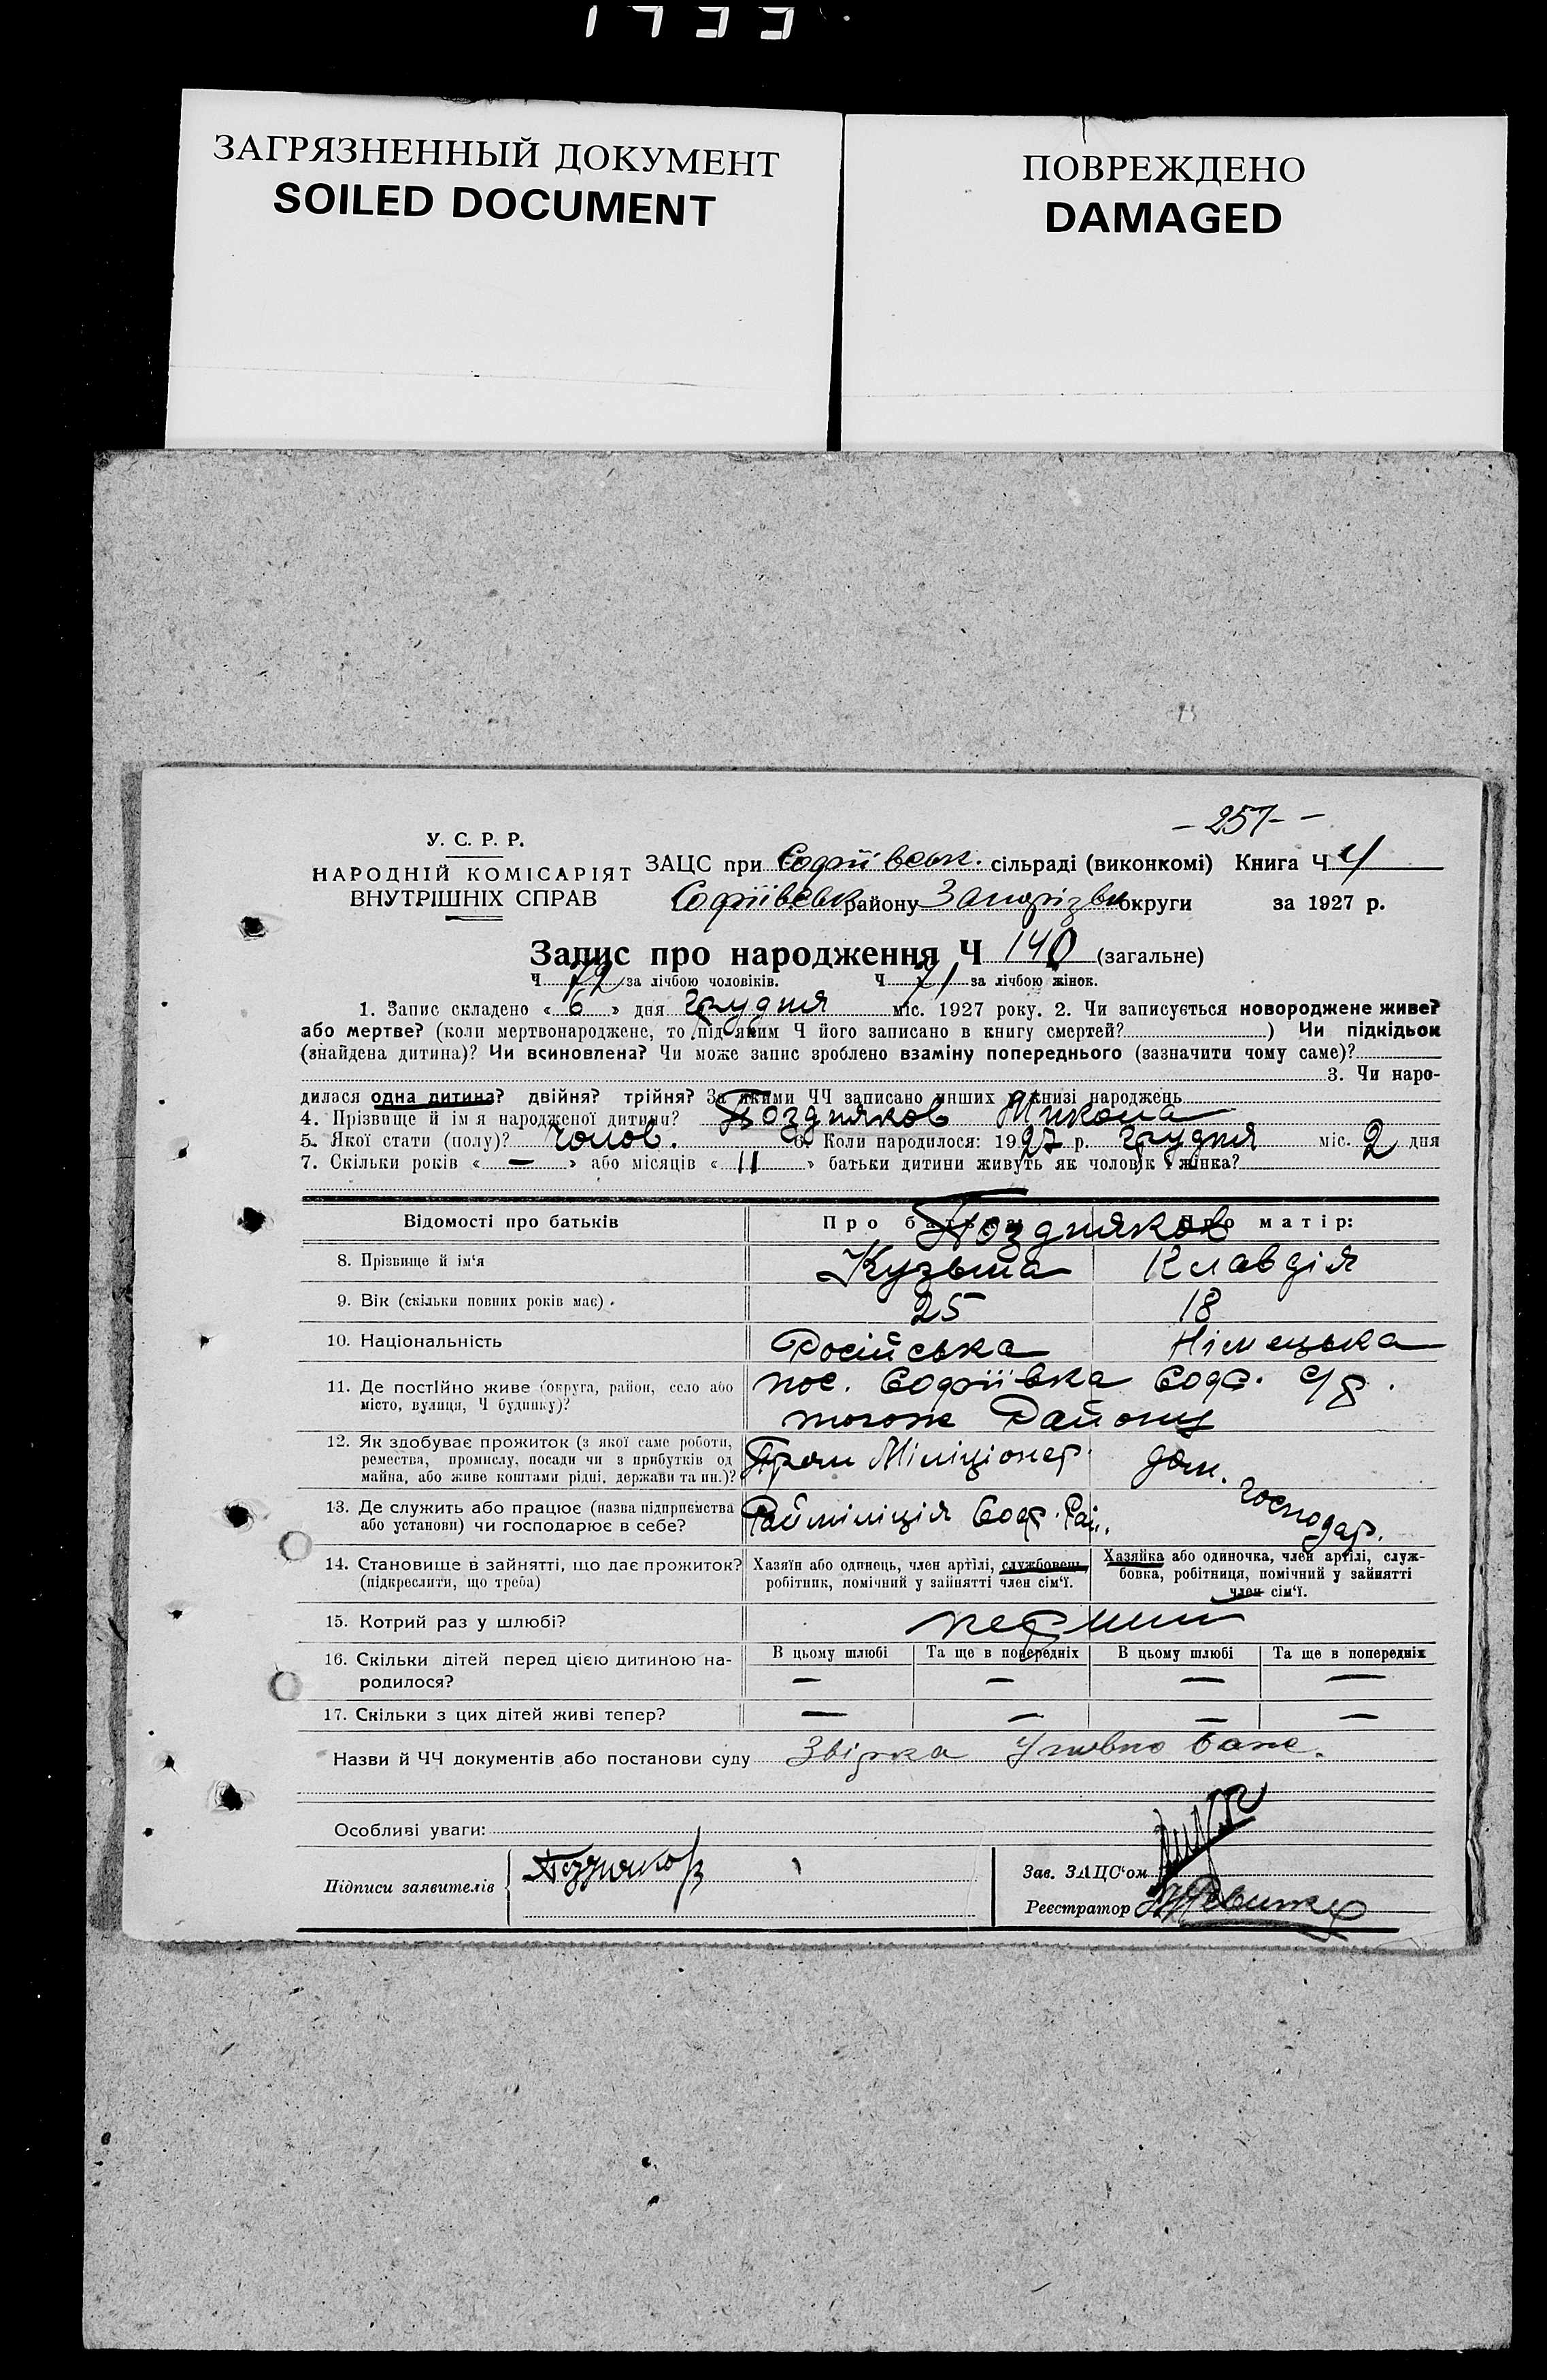 1733
ЗАГРЯЗНЕННЫЙ ДОКУМЕНТ
SOILED DOCUMENT
ПОВРЕЖДЕНО
DAMAGED
- 257 -
У. С. Р. Р.
НАРОДНІЙ КОМІСАРІЯТ
ВНУТРІШНІХ СПРАВ
ЗАЦС при Софіївськ. сільраді (виконкомі) Книга Ч 4
Софіївськ району Запорізьк округи за 1927 р.
Запис про народження Ч 140 (загальне)
Ч 72 за лічбою чоловіків. Ч 71 за лічбою жінок.
1. Запис складено « 6 » дня грудня міс. 1927 року. 2. Чи записується новороджене живе?
або мертве? (коли мертвонароджене, то під яким Ч його записано в книгу смертей? ) Чи підкідьок
(знайдена дитина)? Чи всиновлена? Чи може запис зроблено взаміну попереднього (зазначити чому саме)?
3. Чи наро-
дилася одна дитина? двійня? трійня? За якими ЧЧ записано инших у книзі народжень
4. Прізвище й ім'я народженої дитини? Поздняков Микола
5. Якої статі (полу)? Чолов. 6. Коли народилося: 1927 р. грудня міс. 2 дня
7. Скільки років « — » або місяців « 11 » батьки дитини живуть як чоловік і жінка?
Відомості про батьків Про батька: Про матір:
Поздняков
8. Прізвище й ім'я Кузьма Клавдія
9. Вік (скільки повних років має). 25 18
10. Національність Російська Німецька
11. Де постійно живе (округа, район, село або пос. Софіївка Соф. с/р.
місто, вулиця, Ч будинку)? тогож Району
12. Як здобуває прожиток (з якої саме роботи, Міліціонер дом. господар.
ремества, промислу, посади чи з прибутків од
майна, або живе коштами рідні, держави та ин.)?
13. Де служить або працює (назва підприємства Райміліція Соф. Рай.
або установи) чи господарює в себе?
14. Становище в зайнятті, що дає прожиток? Хазяїн або одинець, член артілі, службовець, Хазяйка або одиночка, член артілі, служ-
(підкреслити, що треба) робітник, помічний у зайнятті член сім'ї. бовка, робітниця, помічний у зайнятті
член сім'ї.
15. Котрий раз у шлюбі? перший
16. Скільки дітей перед цією дитиною на- В цьому шлюбі Та ще в попередніх В цьому шлюбі Та ще в попередніх
родилося? — — — —
17. Скільки з цих дітей живі тепер? — — — —
Назви й ЧЧ документів або постанови суду
Особливі уваги:
Підписи заявителів Поздняков
Зав. ЗАЦС'ом
Реєстратор